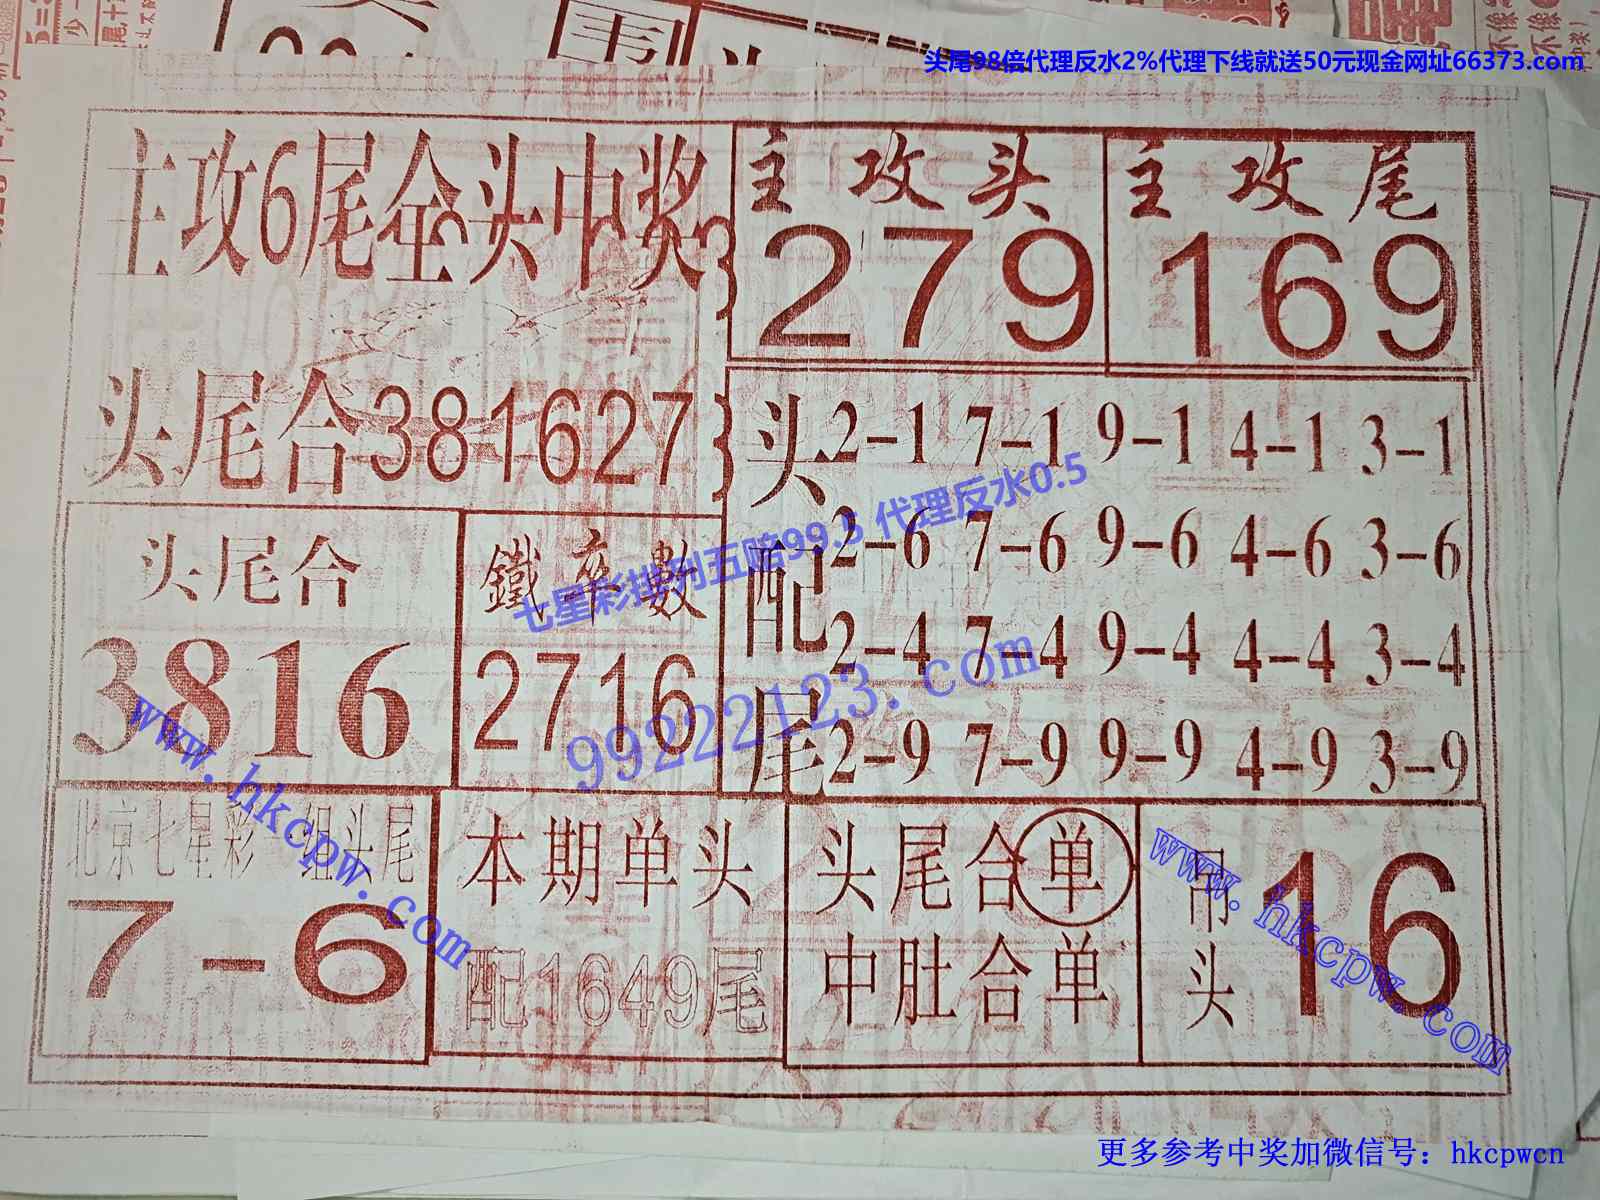 头尾98倍代理反水2%代理下线就送50元现金网址66373.com
主攻6尾全头中奖
主攻头
279
主攻尾
169
头尾合381627
头配尾
2-1 7-1 9-1 4-1 3-1
2-6 7-6 9-6 4-6 3-6
2-4 7-4 9-4 4-4 3-4
2-9 7-9 9-9 4-9 3-9
头尾合
3816
鐵卒數
2716
七星彩排列五赔99.5 代理反水0.5
99222123.com
www.hkcpw.com
北京七星彩 组头尾
7-6
本期单头
配1649尾
头尾合单
中肚合单
吊头
16
www.hkcpw.com
更多参考中奖加微信号：hkcpwcn